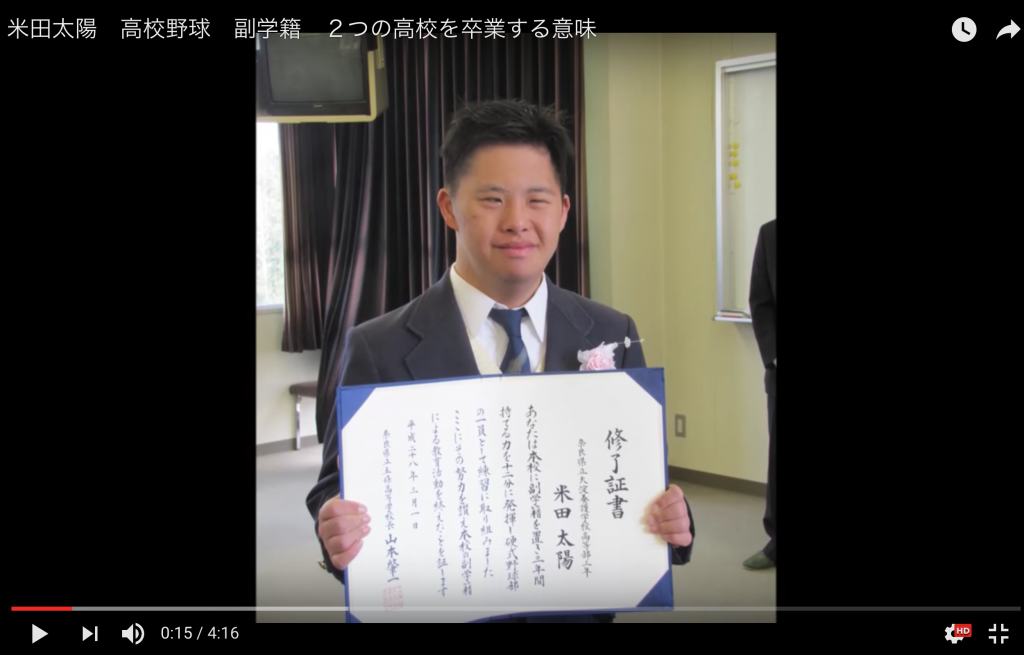 米田太陽　高校野球　副学籍　２つの高校を卒業する意味
修了証書
奈良県立大淀養護学校高等部三年
米田 太陽
あなたは本校に副学籍を置き三年間
持てる力を十二分に発揮し硬式野球部
の一員として練習に取り組みました
ここにその努力を讃え本校の副学籍
による教育活動を終えたことを証します
平成二十八年三月一日
奈良県立五條高等学校長 山本
0:15 / 4:16
HD